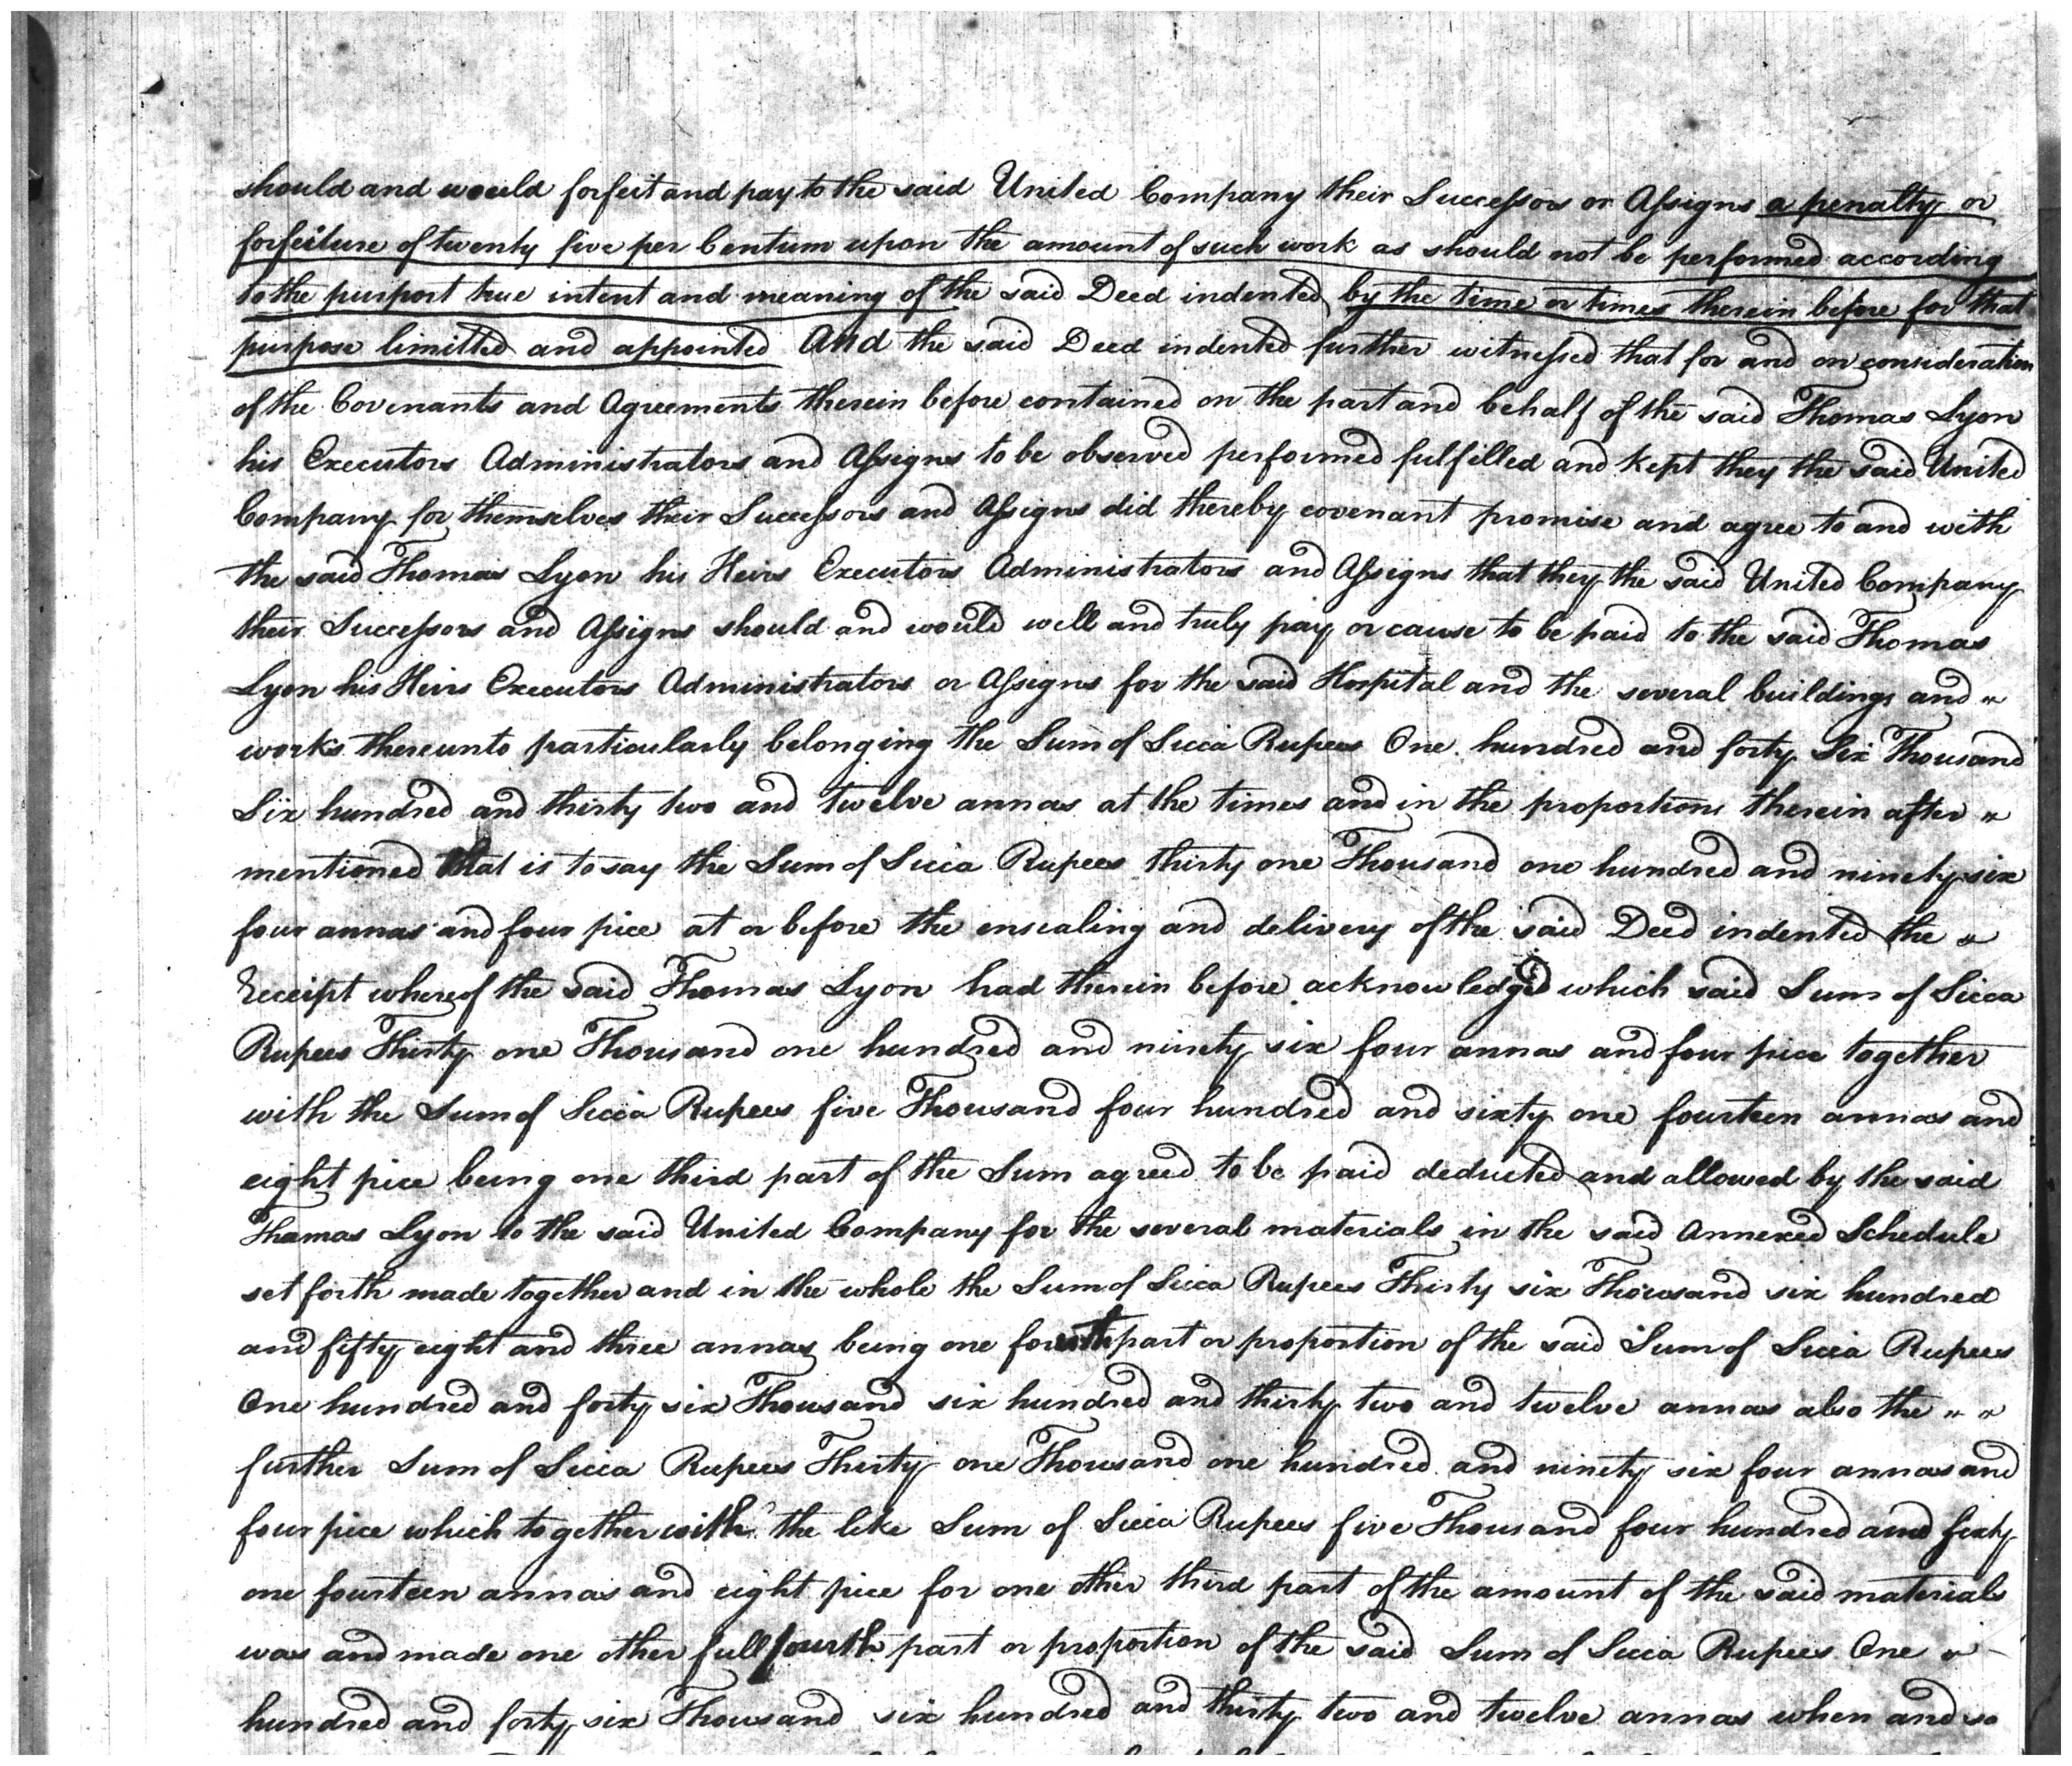 should and would forfeit and pay to the said United Company their Successors or Assigns a penalty or
forfeiture of twenty five per Centum upon the amount of such work as should not be performed according
to the purport true intent and meaning of the said Deed indented by the time or times therein before for that
purpose limitted and appointed And the said Deed indented further witnessed that for and on consideration
of the Covenants and Agreements therein before contained on the part and behalf of the said Thomas Lyon
his Executors Administrators and Assigns to be observed performed fulfilled and kept they the said United
Company for themselves their Successors and Assigns did thereby covenant promise and agree to and with
the said Thomas Lyon his Heirs Executors Administrators and Assigns that they the said United Company
their Successors and Assigns should and would well and truly pay or cause to be paid to the said Thomas
Lyon his Heirs Executors Administrators or Assigns for the said Hospital and the several buildings and "
works thereunto particularly belonging the Sum of Sicca Rupees One hundred and forty Six Thousand
Six hundred and thirty two and twelve annas at the times and in the proportions therein after "
mentioned that is to say the Sum of Sicca Rupees thirty one Thousand one hundred and ninety six
four annas and four pice at or before the ensealing and delivery of the said Deed indented the "
Receipt whereof the said Thomas Lyon had therein before acknowledged which said Sum of Sicca
Rupees Thirty one Thousand one hundred and ninety six four annas and four pice together
with the Sum of Sicca Rupees five Thousand four hundred and sixty one fourteen annas and
eight pice being one third part of the Sum agreed to be paid deducted and allowed by the said
Thomas Lyon to the said United Company for the several materials in the said Annexed Schedule
set forth made together and in the whole the Sum of Sicca Rupees Thirty six Thousand six hundred
and fifty eight and three annas being one fourth part or proportion of the said Sum of Sicca Rupees
One hundred and forty six Thousand six hundred and thirty two and twelve annas also the " "
further Sum of Sicca Rupees Thirty one Thousand one hundred and ninety six four annas and
four pice which together with the like Sum of Sicca Rupees five Thousand four hundred and sixty
one fourteen annas and eight pice for one other third part of the amount of the said materials
was and made one other full fourth part or proportion of the said Sum of Sicca Rupees One "
hundred and forty six Thousand six hundred and thirty two and twelve annas when and so